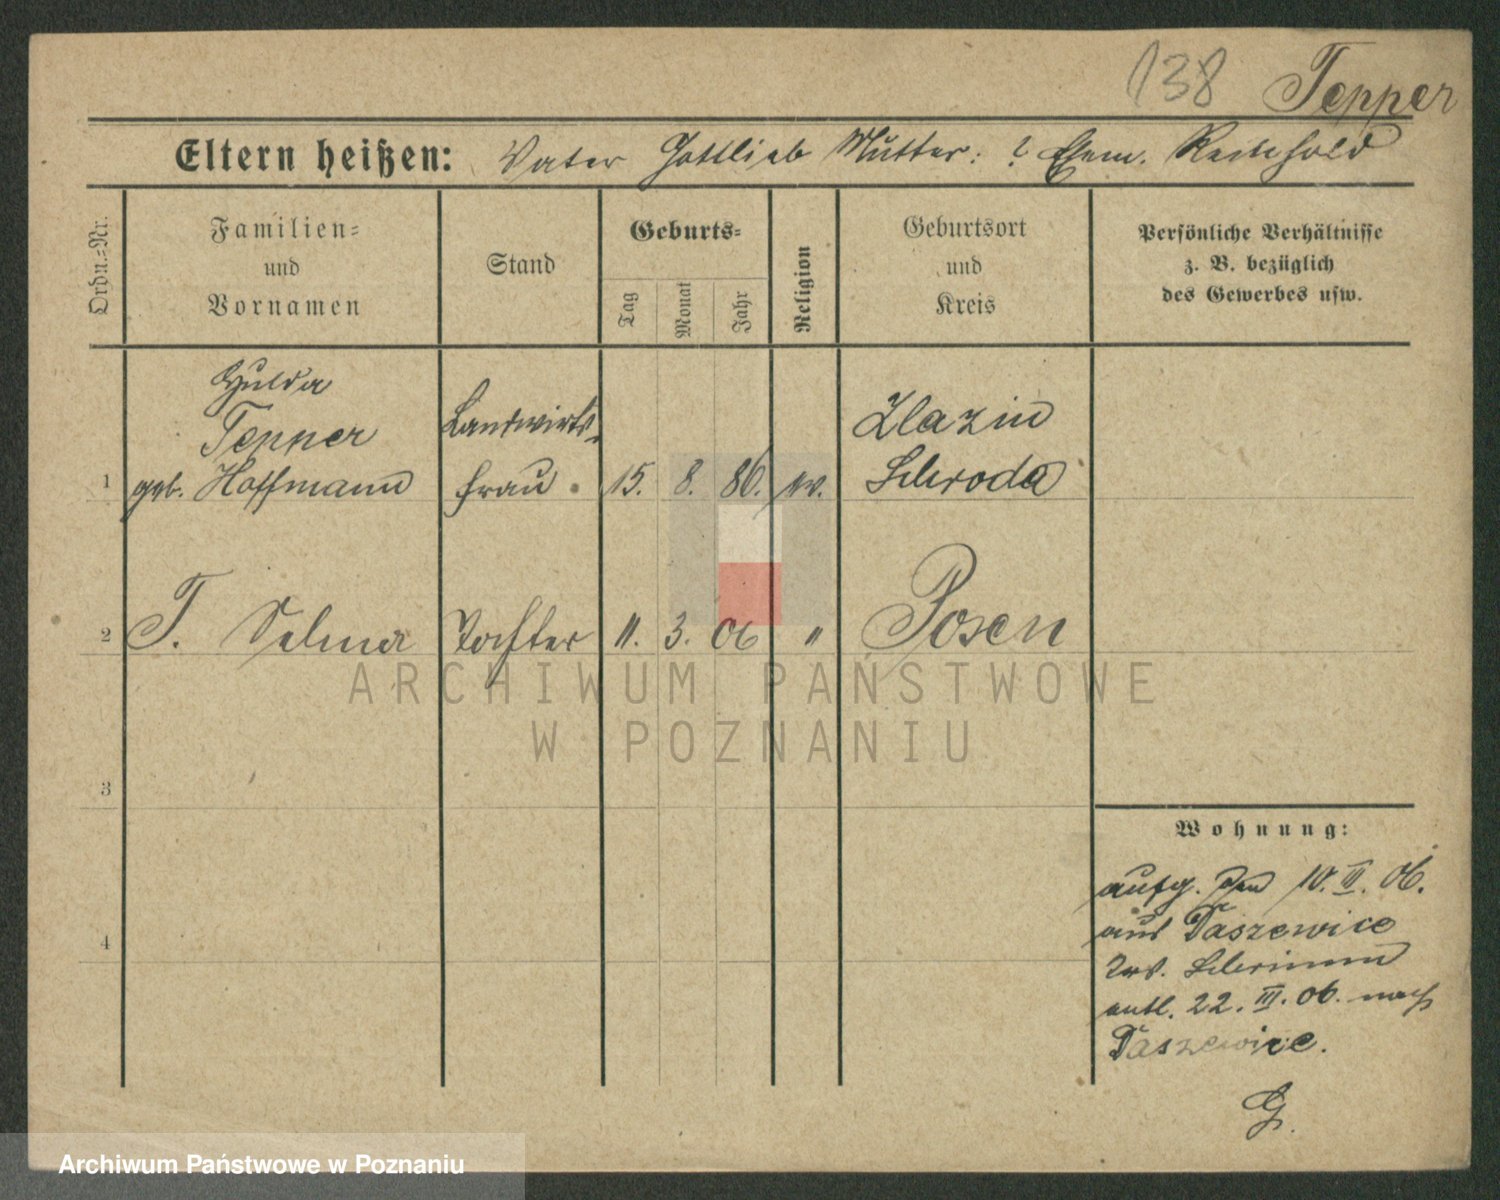 138 Tepper
Eltern heißen: Vater Gottlieb Mutter: ? Ehem. Reinhold
Ordn.-Nr.
Familien-
und
Vornamen
Stand
Geburts-
Tag
Monat
Jahr
Religion
Geburtsort
und
Kreis
Persönliche Verhältnisse
z. B. bezüglich
des Gewerbes usw.
Hulda
Tepper
1 geb. Hoffmann
Landwirts-
frau.
15. 8. 86. ev.
Schroda
2 T. Selma Tochter 11. 3. 06 " Posen
ARCHIWUM PAŃSTWOWE
W POZNANIU
3
4
Wohnung:
aufg. den 10. II. 06.
aus Daszewice
Krs. Schrimm
entl. 22. III. 06. nach
Daszewice.
G.
Archiwum Państwowe w Poznaniu